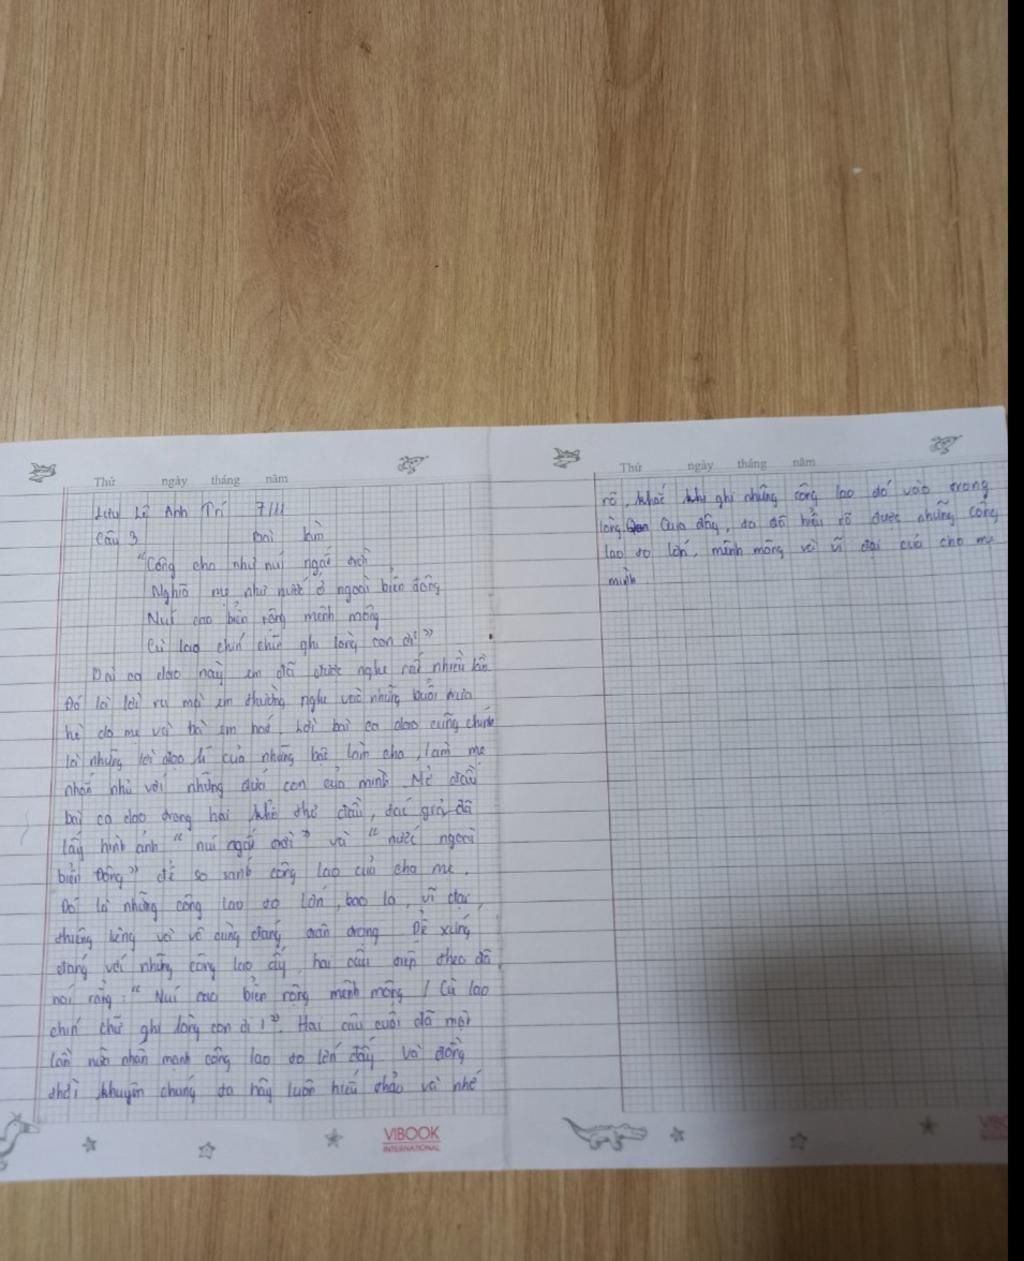 Thứ ngày tháng năm
Lưu Lê Anh Trí 7/11
Câu 3 Bài làm
"Công cha như núi ngất trời
Nghĩa mẹ như nước ở ngoài biển đông
Núi cao biển rộng mênh mông
Cù lao chín chữ ghi lòng con ơi!"
Bài ca dao này em đã được nghe rất nhiều lần
Đó là lời ru mà em thường nghe vào những buổi trưa
hè do mẹ và bà em hát. Lời bài ca dao cũng chính
là những lời đạo lí của những bậc làm cha, làm mẹ
nhắn nhủ với những đứa con của mình. Mở đầu
bài ca dao trong hai khổ thơ đầu, tác giả đã
lấy hình ảnh "núi ngất trời" và "nước ngoài
biển Đông" để so sánh công lao của cha mẹ.
Đó là những công lao to lớn, bao la, vĩ đại,
thiêng liêng và vô cùng đáng trân trọng. Để xứng
đáng với những công lao ấy, hai câu tiếp theo đã
nói rằng: "Núi cao biển rộng mênh mông / Cù lao
chín chữ ghi lòng con ơi!". Hai câu cuối đã một
lần nữa nhấn mạnh công lao to lớn đấy và đồng
thời khuyên chúng ta hãy luôn hiếu thảo và nhớ
VIBOOK
INTERNATIONAL
Thứ ngày tháng năm
rõ, khắc ghi những công lao đó vào trong
lòng. Qua đây, ta đã hiểu rõ được những công
lao to lớn, mênh mông và vĩ đại của cha mẹ
mình.